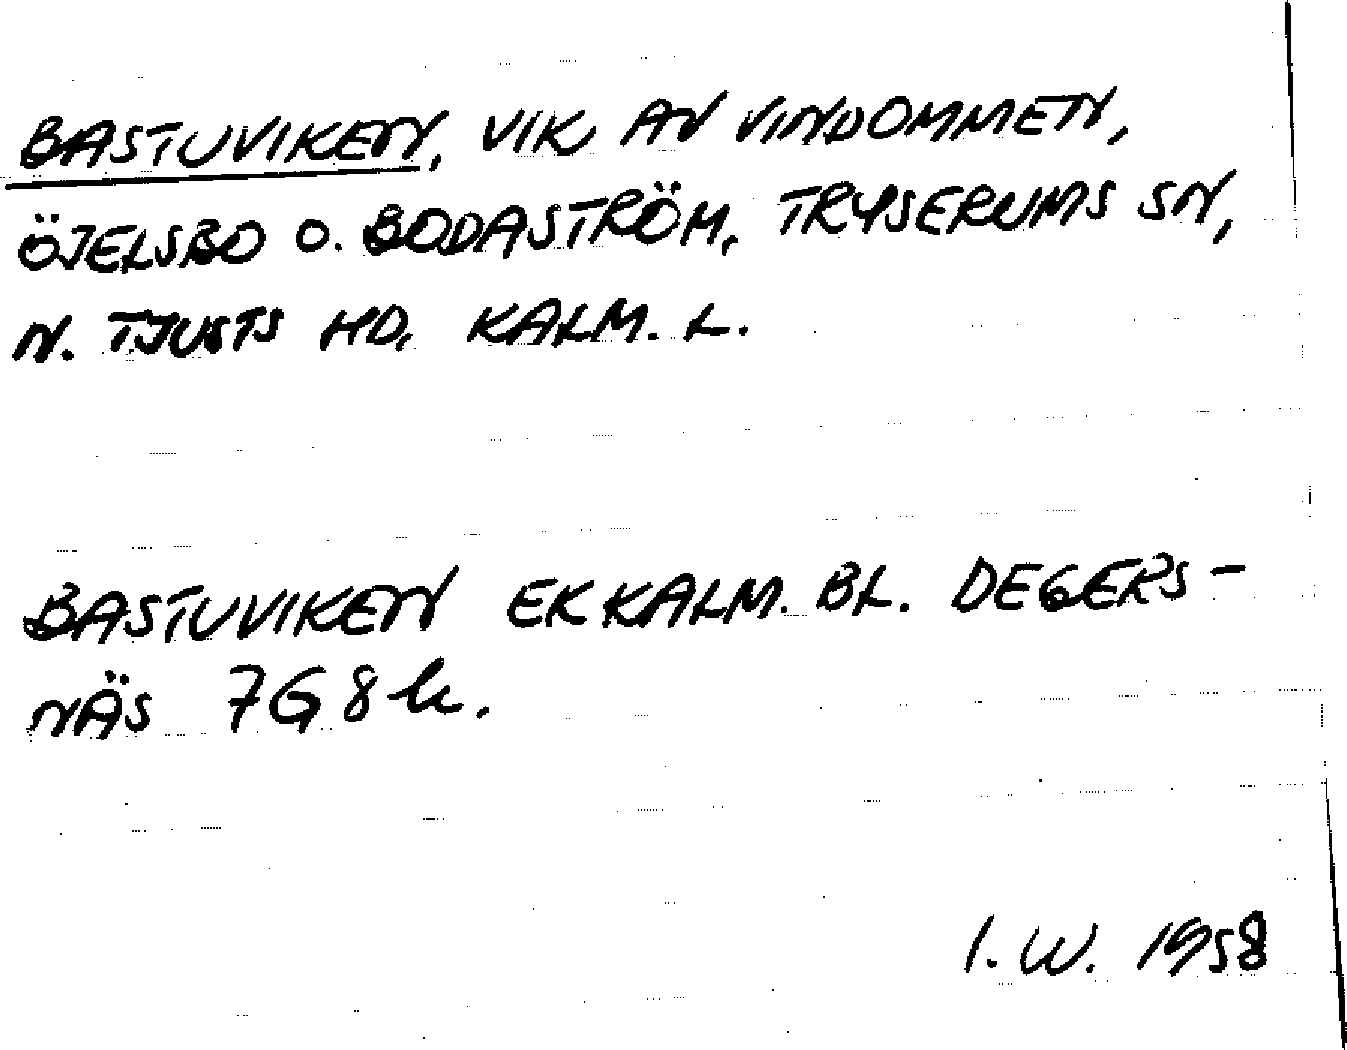 BASTUVIKEN, VIK AV VINDOMMEN,
ÖJELSBO O. BODASTRÖM, TRYSERUMS SN,
N. TJUSTS HD, KALM. L.
BASTUVIKEN EK KALM. BL. DEGERS-
NÄS 7G8h.
I. W. 1958